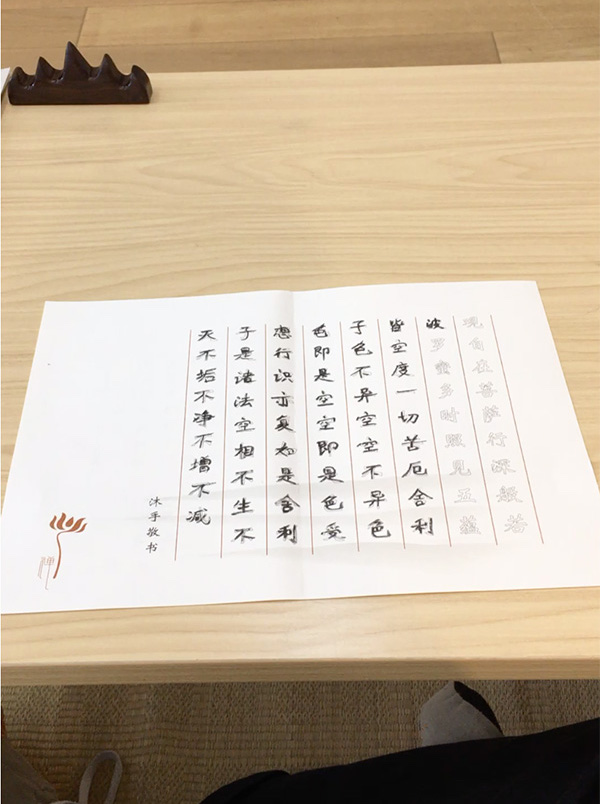 观自在菩萨行深般若
波罗蜜多时照见五蕴
皆空度一切苦厄舍利
子色不异空空不异色
色即是空空即是色受
想行识亦复如是舍利
子是诸法空相不生不
灭不垢不净不增不减
沐手敬书
禅